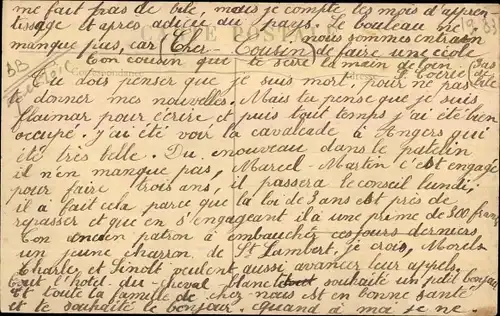 me fait pas de bile, mais je compte les mois d'appren
tissage et après adieu du pays. Le bouleau ne
manque pas, car nous sommes entrain
CARTE POSTALE
(Cher Cousin) de faire une école
Ton cousin que te serre la main de loin.
Correspondance
Adresse
(Pas de bile)
Tu dois penser que je suis mort, pour ne pas
donner mes nouvelles. Mais tu pense que je suis
flaimar pour écrire et puis tout temps j'ai été bien
occupé. J'ai été voir la cavalcade à Angers qui
été très belle. Du nouveau dans le patelin
il n'en manque pas, Marcel Martin c'est engagé
pour faire trois ans, il passera le conseil lundi;
il a fait cela parce que la loi de 3 ans est près de
repasser et que en s'engageant il a une prime de 300 francs
Ton ancien patron à embauché ces jours derniers
un jeune charron de St Lambert, je crois, Morels
Charle et Sinolt veulent aussi avancer leur appel.
Tout l'hôtel du cheval blanc souhaite un petit bonjour
et toute la famille de chez nous est en bonne santé
et te souhaite le bonjour. Quand à moi je ne